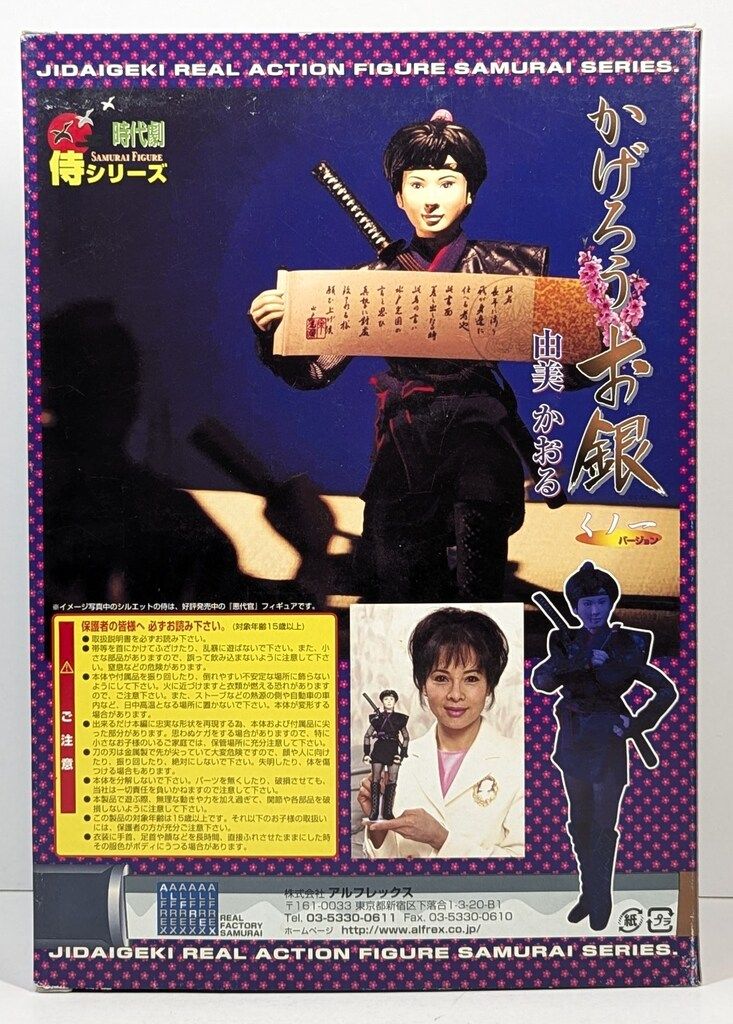 JIDAIGEKI REAL ACTION FIGURE SAMURAI SERIES.
時代劇
SAMURAI FIGURE
侍シリーズ
かげろうお銀
由美 かおる
くノ一
バージョン
※イメージ写真中のシルエットの侍は、好評発売中の「悪代官」フィギュアです。
ご注意
保護者の皆様へ 必ずお読み下さい。(対象年齢15歳以上)
●取扱説明書を必ずお読み下さい。
●帯等を首にかけてふざけたり、乱暴に遊ばないで下さい。また、小
さな部品がありますので、誤って飲み込まないように注意して下さ
い。窒息などの危険があります。
●本体や付属品を振り回したり、倒れやすい不安定な場所に飾らない
ようにして下さい。火に近づけますと衣類が燃える恐れがあります
ので、ご注意下さい。また、ストーブなどの熱源の側や自動車の車
内など、日中高温となる場所に置かないで下さい。本体が変形する
場合があります。
●出来るだけ本編に忠実な形状を再現する為、本体および付属品に尖
った部分があります。思わぬケガをする場合がありますので、特に
小さなお子様のいるご家庭では、保管場所に充分注意して下さい。
●刀の刃は金属製で先が尖っていて大変危険ですので、顔や人に向け
たり、振り回したり、絶対にしないで下さい。失明したり、体を傷
つける場合もあります。
●本体を分解しないで下さい。パーツを無くしたり、破損させても、
当社は一切責任を負いかねますので注意して下さい。
●本製品で遊ぶ際、無理な動きや力を加え過ぎて、関節や各部品を破
損しないように注意して下さい。
●この製品の対象年齢は15歳以上です。それ以下のお子様の取扱い
には、保護者の方が充分ご注意下さい。
●衣装に手首、足首や顔などを長時間、直接ふれさせたままにした時
その服色がボディにうつる場合があります。
REAL
FACTORY
SAMURAI
株式会社 アルフレックス
〒161-0033 東京都新宿区下落合1-3-20-B1
Tel. 03-5330-0611 Fax. 03-5330-0610
ホームページ http://www.alfrex.co.jp/
紙
プラ
JIDAIGEKI REAL ACTION FIGURE SAMURAI SERIES.